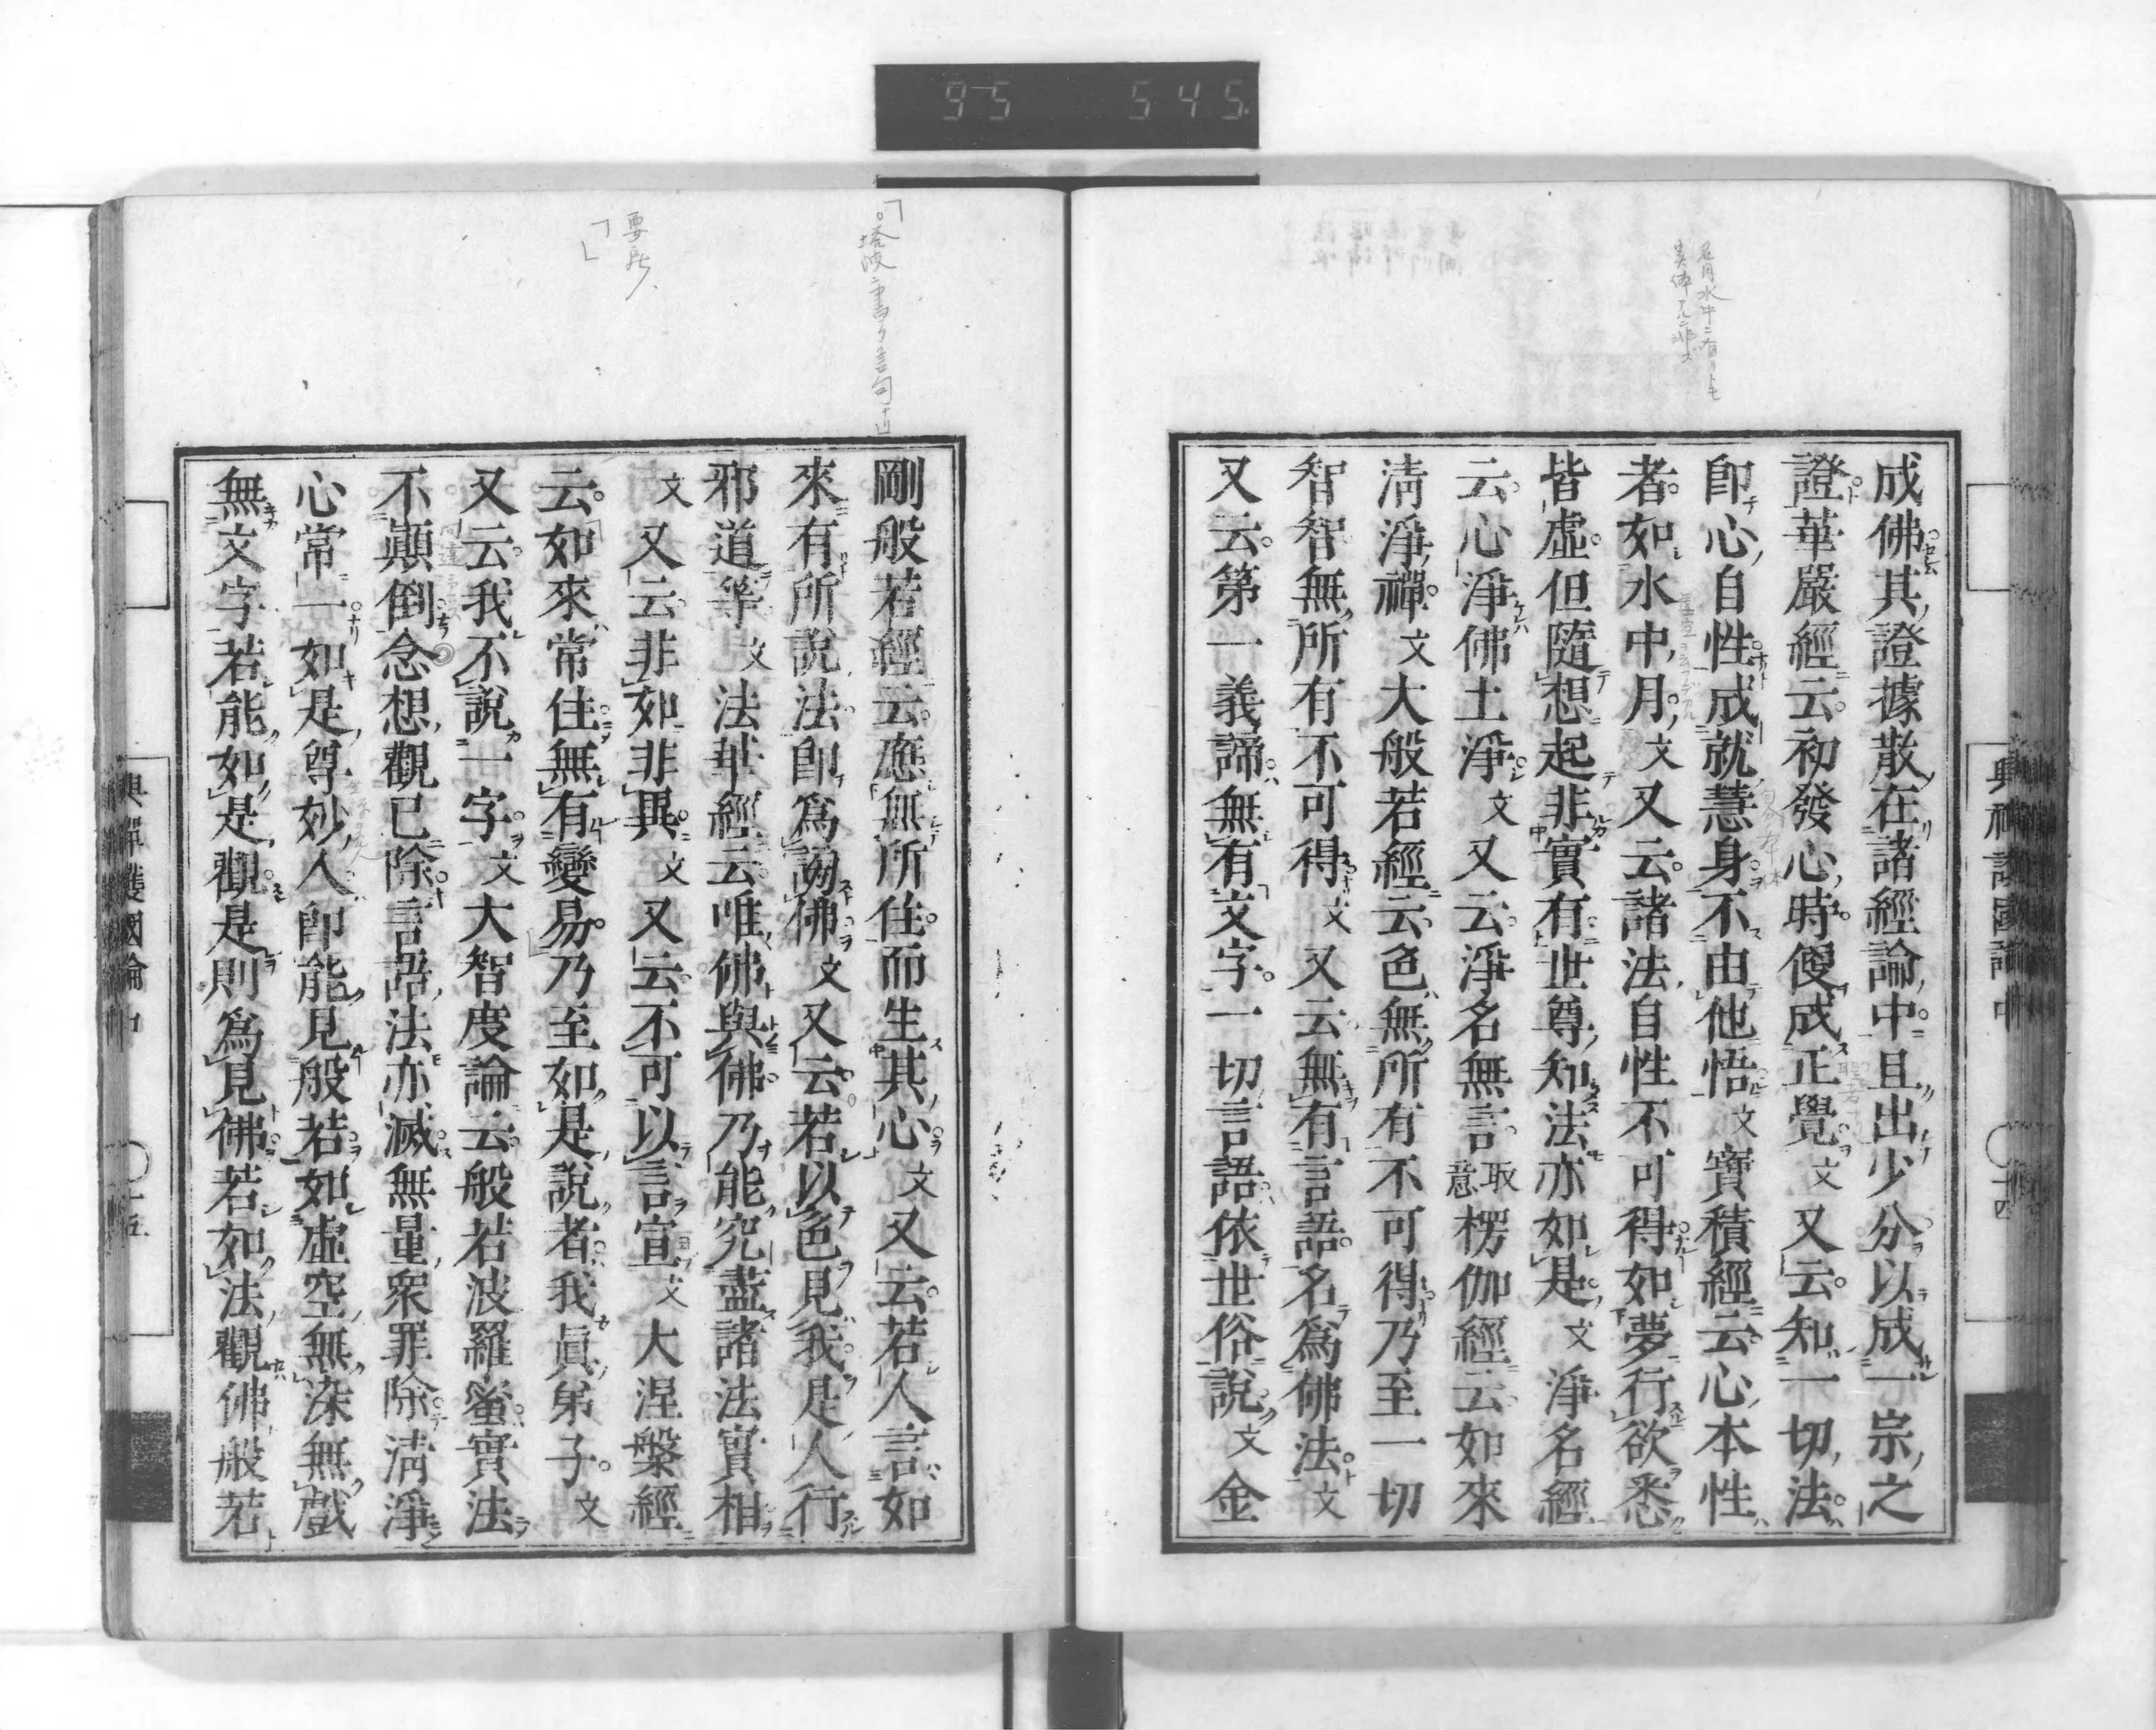 成佛其證據散在諸經論中且出少分以成一宗之
證華嚴經云初發心時便成正覺文又云知一切法
卽心自性成就慧身不由他悟文寶積經云心本性
者如水中月文又云諸法自性不可得如夢行欲悉
皆虛但隨想起非實有世尊知法亦如是文淨名經
云心淨佛土淨文又云淨名無言取意楞伽經云如來
清淨禪文大般若經云色無所有不可得乃至一切
智智無所有不可得文又云無有言語名爲佛法文
又云第一義諦無有文字一切言語依世俗說文金
剛般若經云應無所住而生其心文又云若人言如
來有所說法卽爲謗佛文又云若以色見我是人行
邪道等文法華經云唯佛與佛乃能究盡諸法實相
文又云非如非異文又云不可以言宣文大涅槃經
云如來常住無有變易乃至如是說者我眞弟子文
又云我不說一字文大智度論云般若波羅蜜實法
不顚倒念想觀已除言語法亦滅無量衆罪除淸淨
心常一如是尊妙人卽能見般若如虛空無染無戲
無文字若能如是觀是則爲見佛若如法觀佛般若
興禪護國論中
95 545